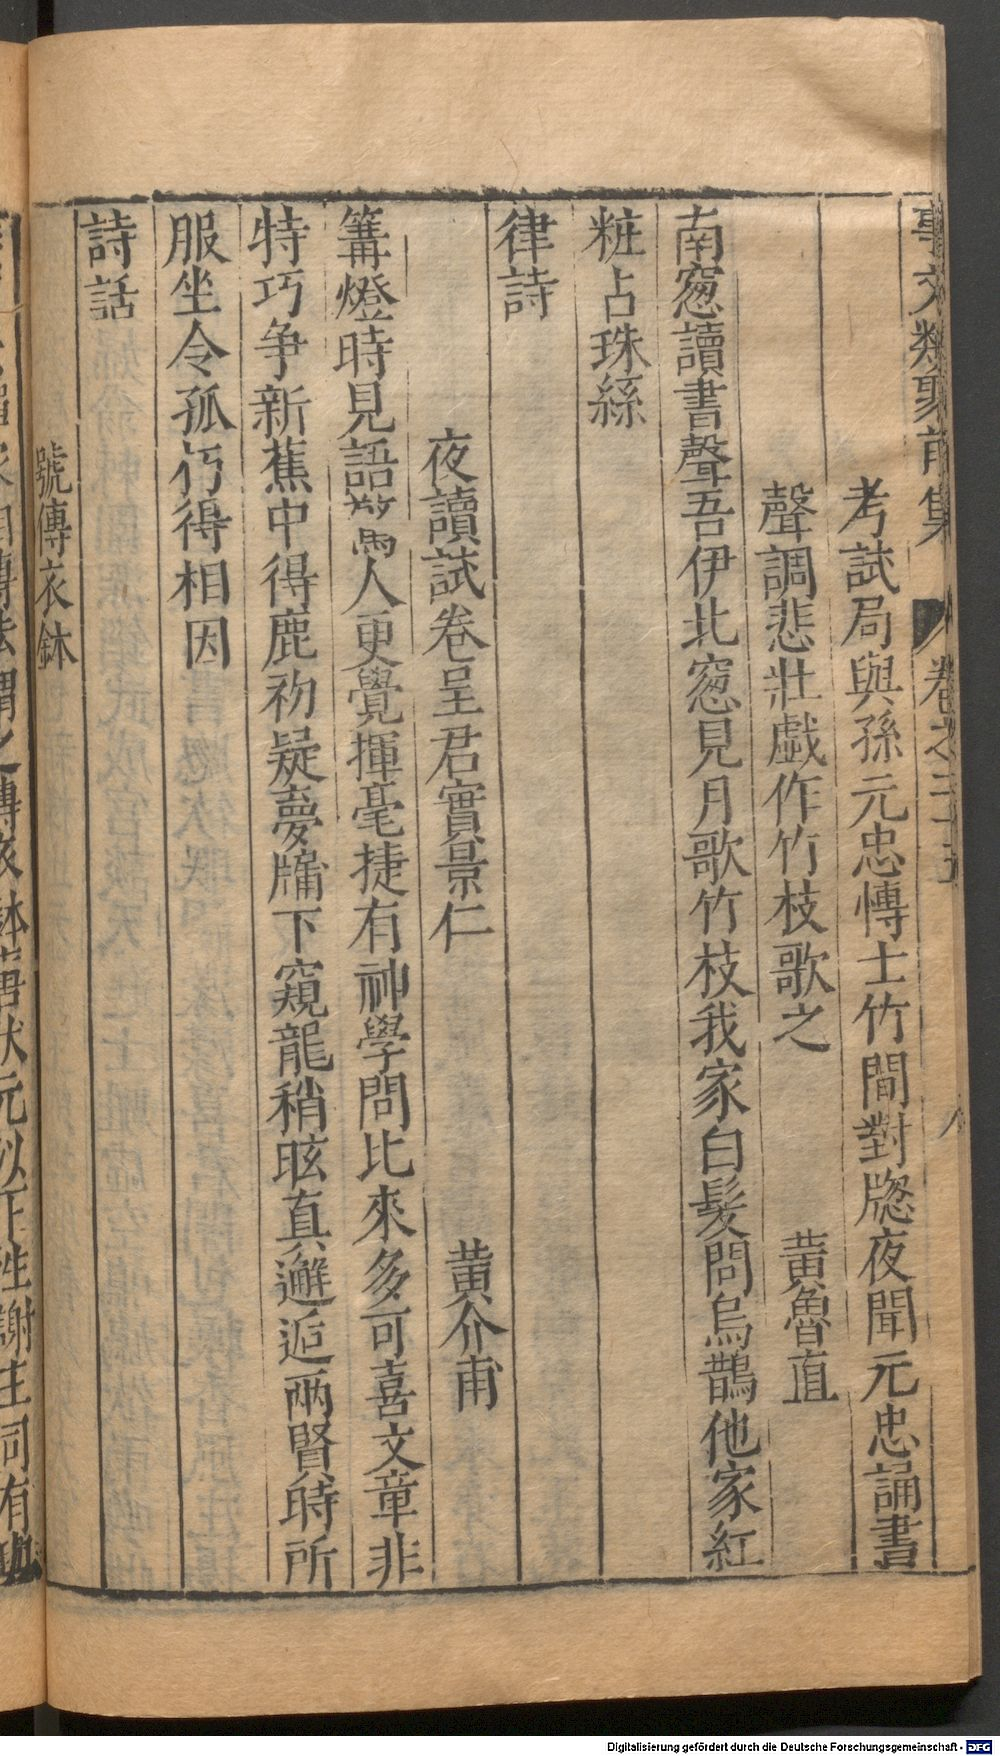 事文類聚前集 卷之二十五 八
考試局與孫元忠慱士竹間對牎夜聞元忠誦書
聲調悲壯戯作竹枝歌之 黄魯直
南窓讀書聲吾伊北窓見月歌竹枝我家白髮問烏鵲他家紅
粧占珠絲
律詩
夜讀試卷呈君實景仁 黄介甫
篝燈時見語驚人更覺揮毫捷有神學問比來多可喜文章非
特巧争新蕉中得鹿初疑夢牗下窺龍稍眩真邂逅兩賢時所
服坐令孤朽得相因
詩話
號傳衣鉢
Digitalisierung gefördert durch die Deutsche Forschungsgemeinschaft - DFG